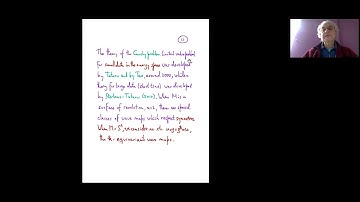 12
The theory of the Cauchy problem (initial value problem)
for small data in the energy space was developed
by Tataru and by Tao, around 2000, while a
theory for large data (short time) was developed
by Sterbenz-Tataru (2010). When M is a
surface of revolution, there are special
classes of wave maps which respect symmetries.
When M = S², we consider the
the k-equivariant wave maps.